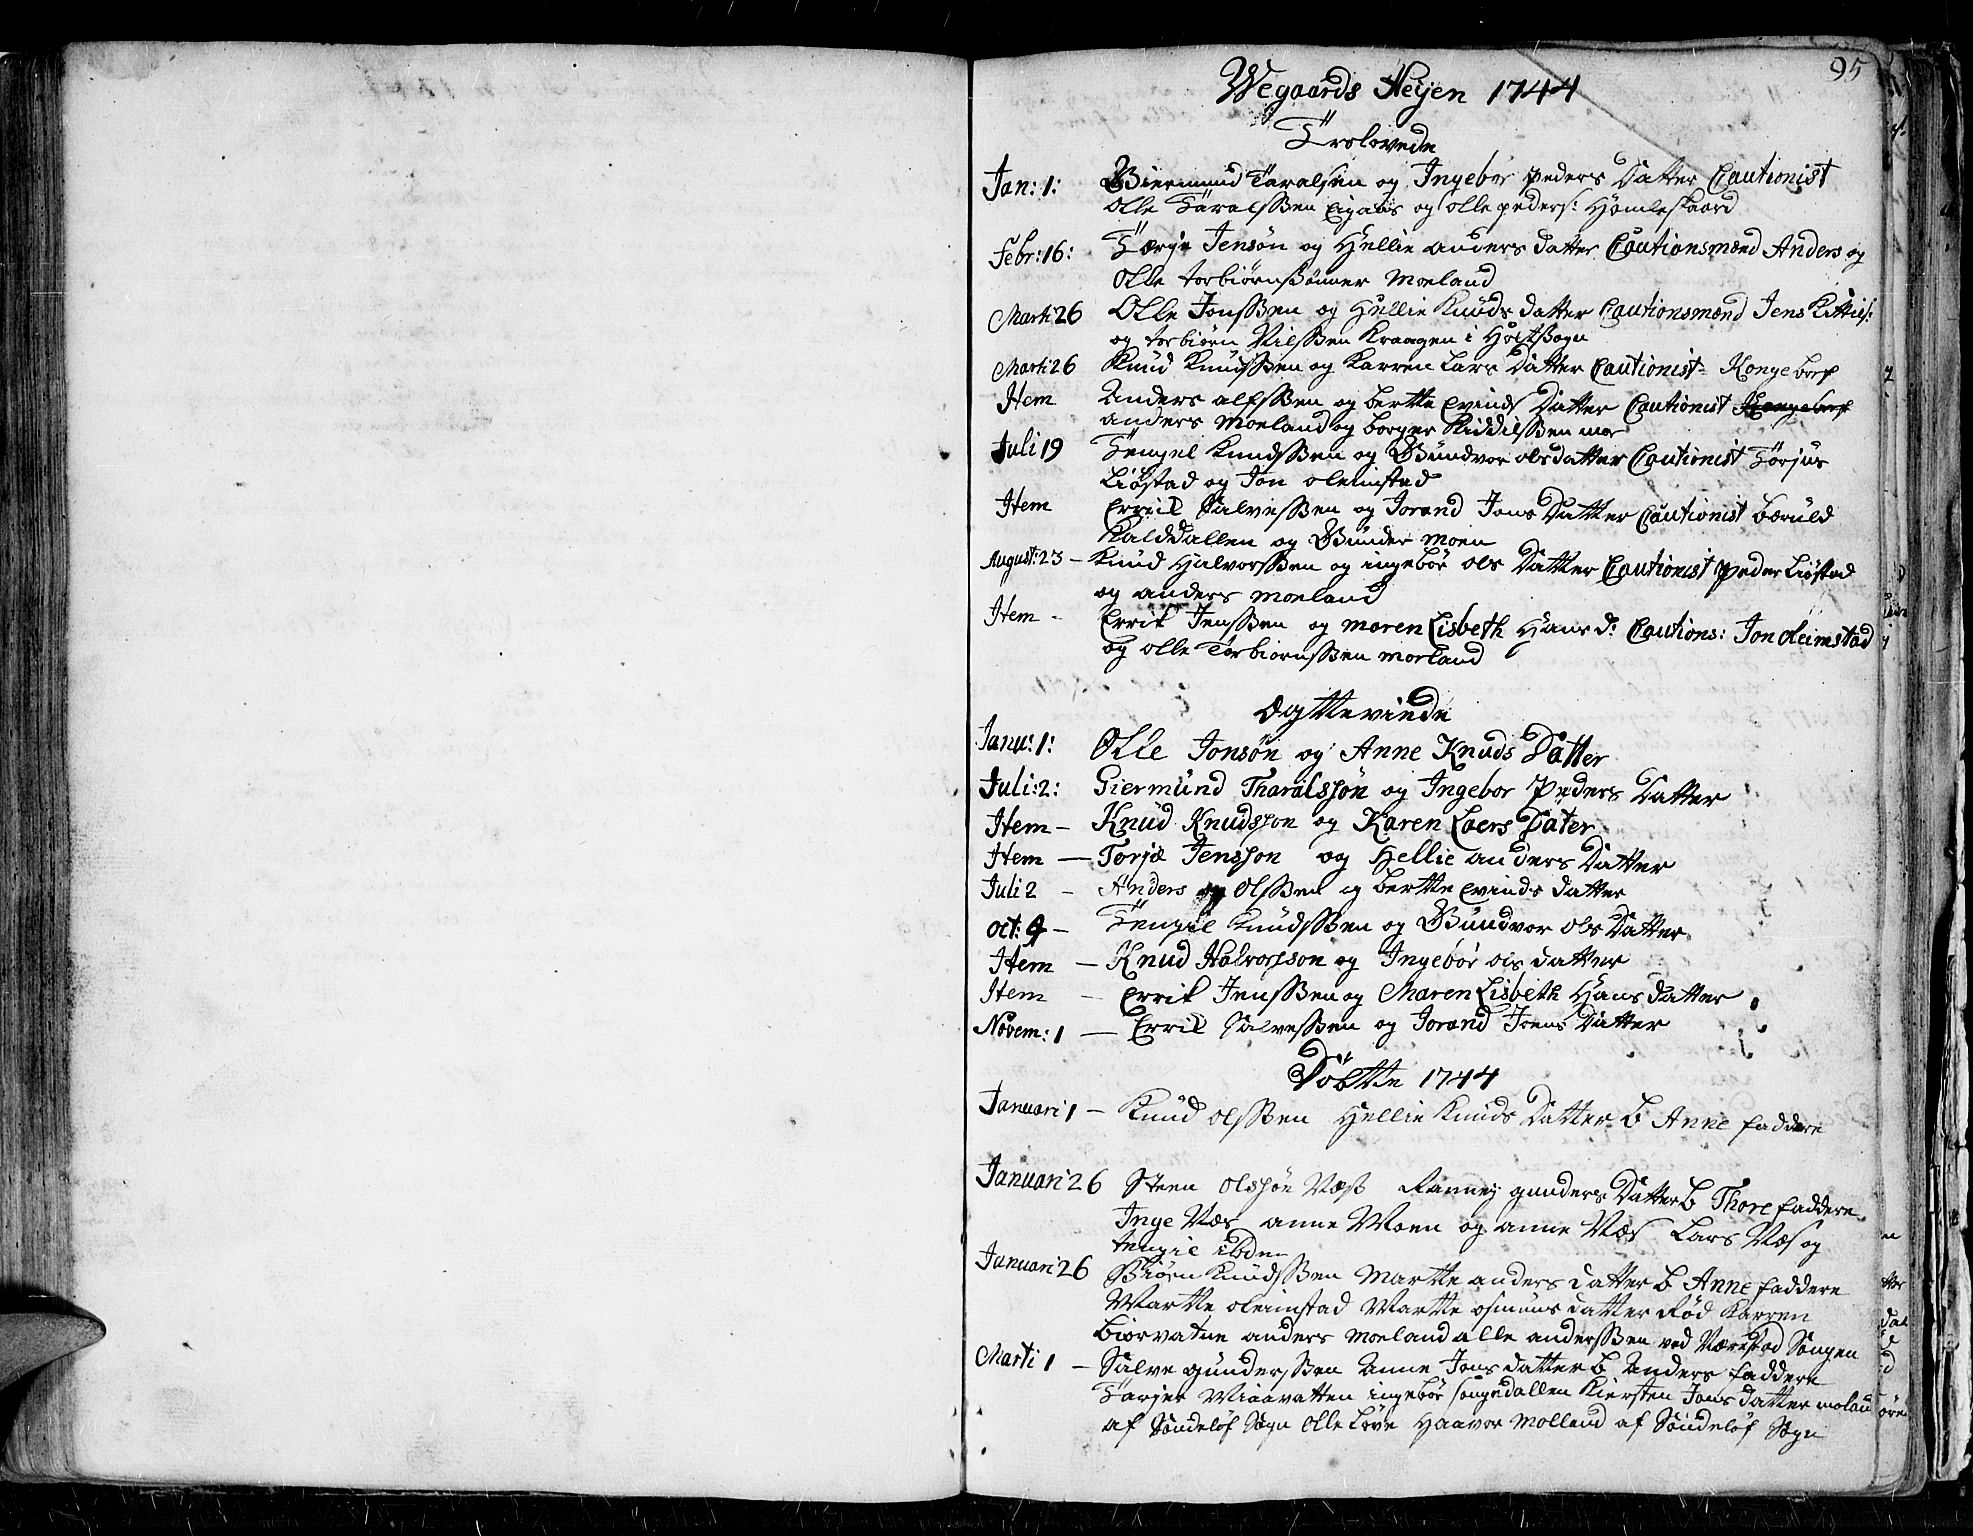 95
Wegaards Heyen 1744
Trolovede
Jan: 1: Giermund Taralsen og Ingebor peders Datter Cautionist
Olle Taralssen Eigaas og olle peders: Homleskaard
Febr: 16: Tærje Jensøn og Hellie anders datter Cautionsmænd Anders og
Olle torbiørnssønner Moeland
Marti 26 Olle Jonssen og Hellie Knuds datter Cautionsmænd Jens Kittils:
og torbiørn Nilssen Kraagen i Holtssogn
Marti 26 Knud Knudssen og Karren Lars Datter Cautionist
Item Anders alfssen og bertte Evinds Datter Cautionist
anders Moeland og borger Kiddilssen moe
Juli 19 Tengel Knudssen og Gundvor olsdatter Cautionist Torjus
Liøstad og Jon oleimstad
Item Errik Salvessen og Jorand Jons Datter Cautionist bæruld
Kalddallen og Gunder moen
August: 23 - Knud Halvorssen og ingebor ols Datter Cautionist Peder Liøstad
og anders moeland
Item - Errik Jenssen og maren Lisbeth Hans d: Cautions: Jon oleimstad
og olle Torbiornssen morland
Ægtteviede
Janu: 1: Olle Jonsøn og Anne Knuds Datter
Juli: 2: Giermund Tharalssøn og Ingebor Peders Datter
Item - Knud Knudsson og Karen Laers Dater
Item - Torjæ Jensson og Hellie anders Datter
Juli 2 - Anders Olssen og bertte Evinds datter
oct: 4 - Tengil Knudssen og Gundvor Ols Datter
Item - Knud Halvorsson og Ingebor ols datter
Item - Errik Jenssen og Maren Lisbeth Hans datter
Novem: 1 - Errik Salvessen og Jorand Joens Datter
Døbtte 1744
Januari 1 - Knud olssen Hellie Knuds Datter b Anne faddere
Januari 26 Steen olssøn Næss Ranney gunders Datter b Thore faddere
Inge Næs anne Moen og anne Næs Lars Næs og
tengil ibden
Januari 26 Biørn Knudssen Martte anders datter b Anne faddere
Martte oleimstad Martte osmuns datter Rød Karren
biorvatne anders moeland alle anderssen ved Værkstad Songen
Marti 1 - Salve gunderssen Anne Jons datter b Anders faddere
Tarjer Miaavatten ingebor songedallen Kiersten Jons datter molau
af Sondeløf Sogn Olle Løve Haavor Molland af Søndeløf Sogn